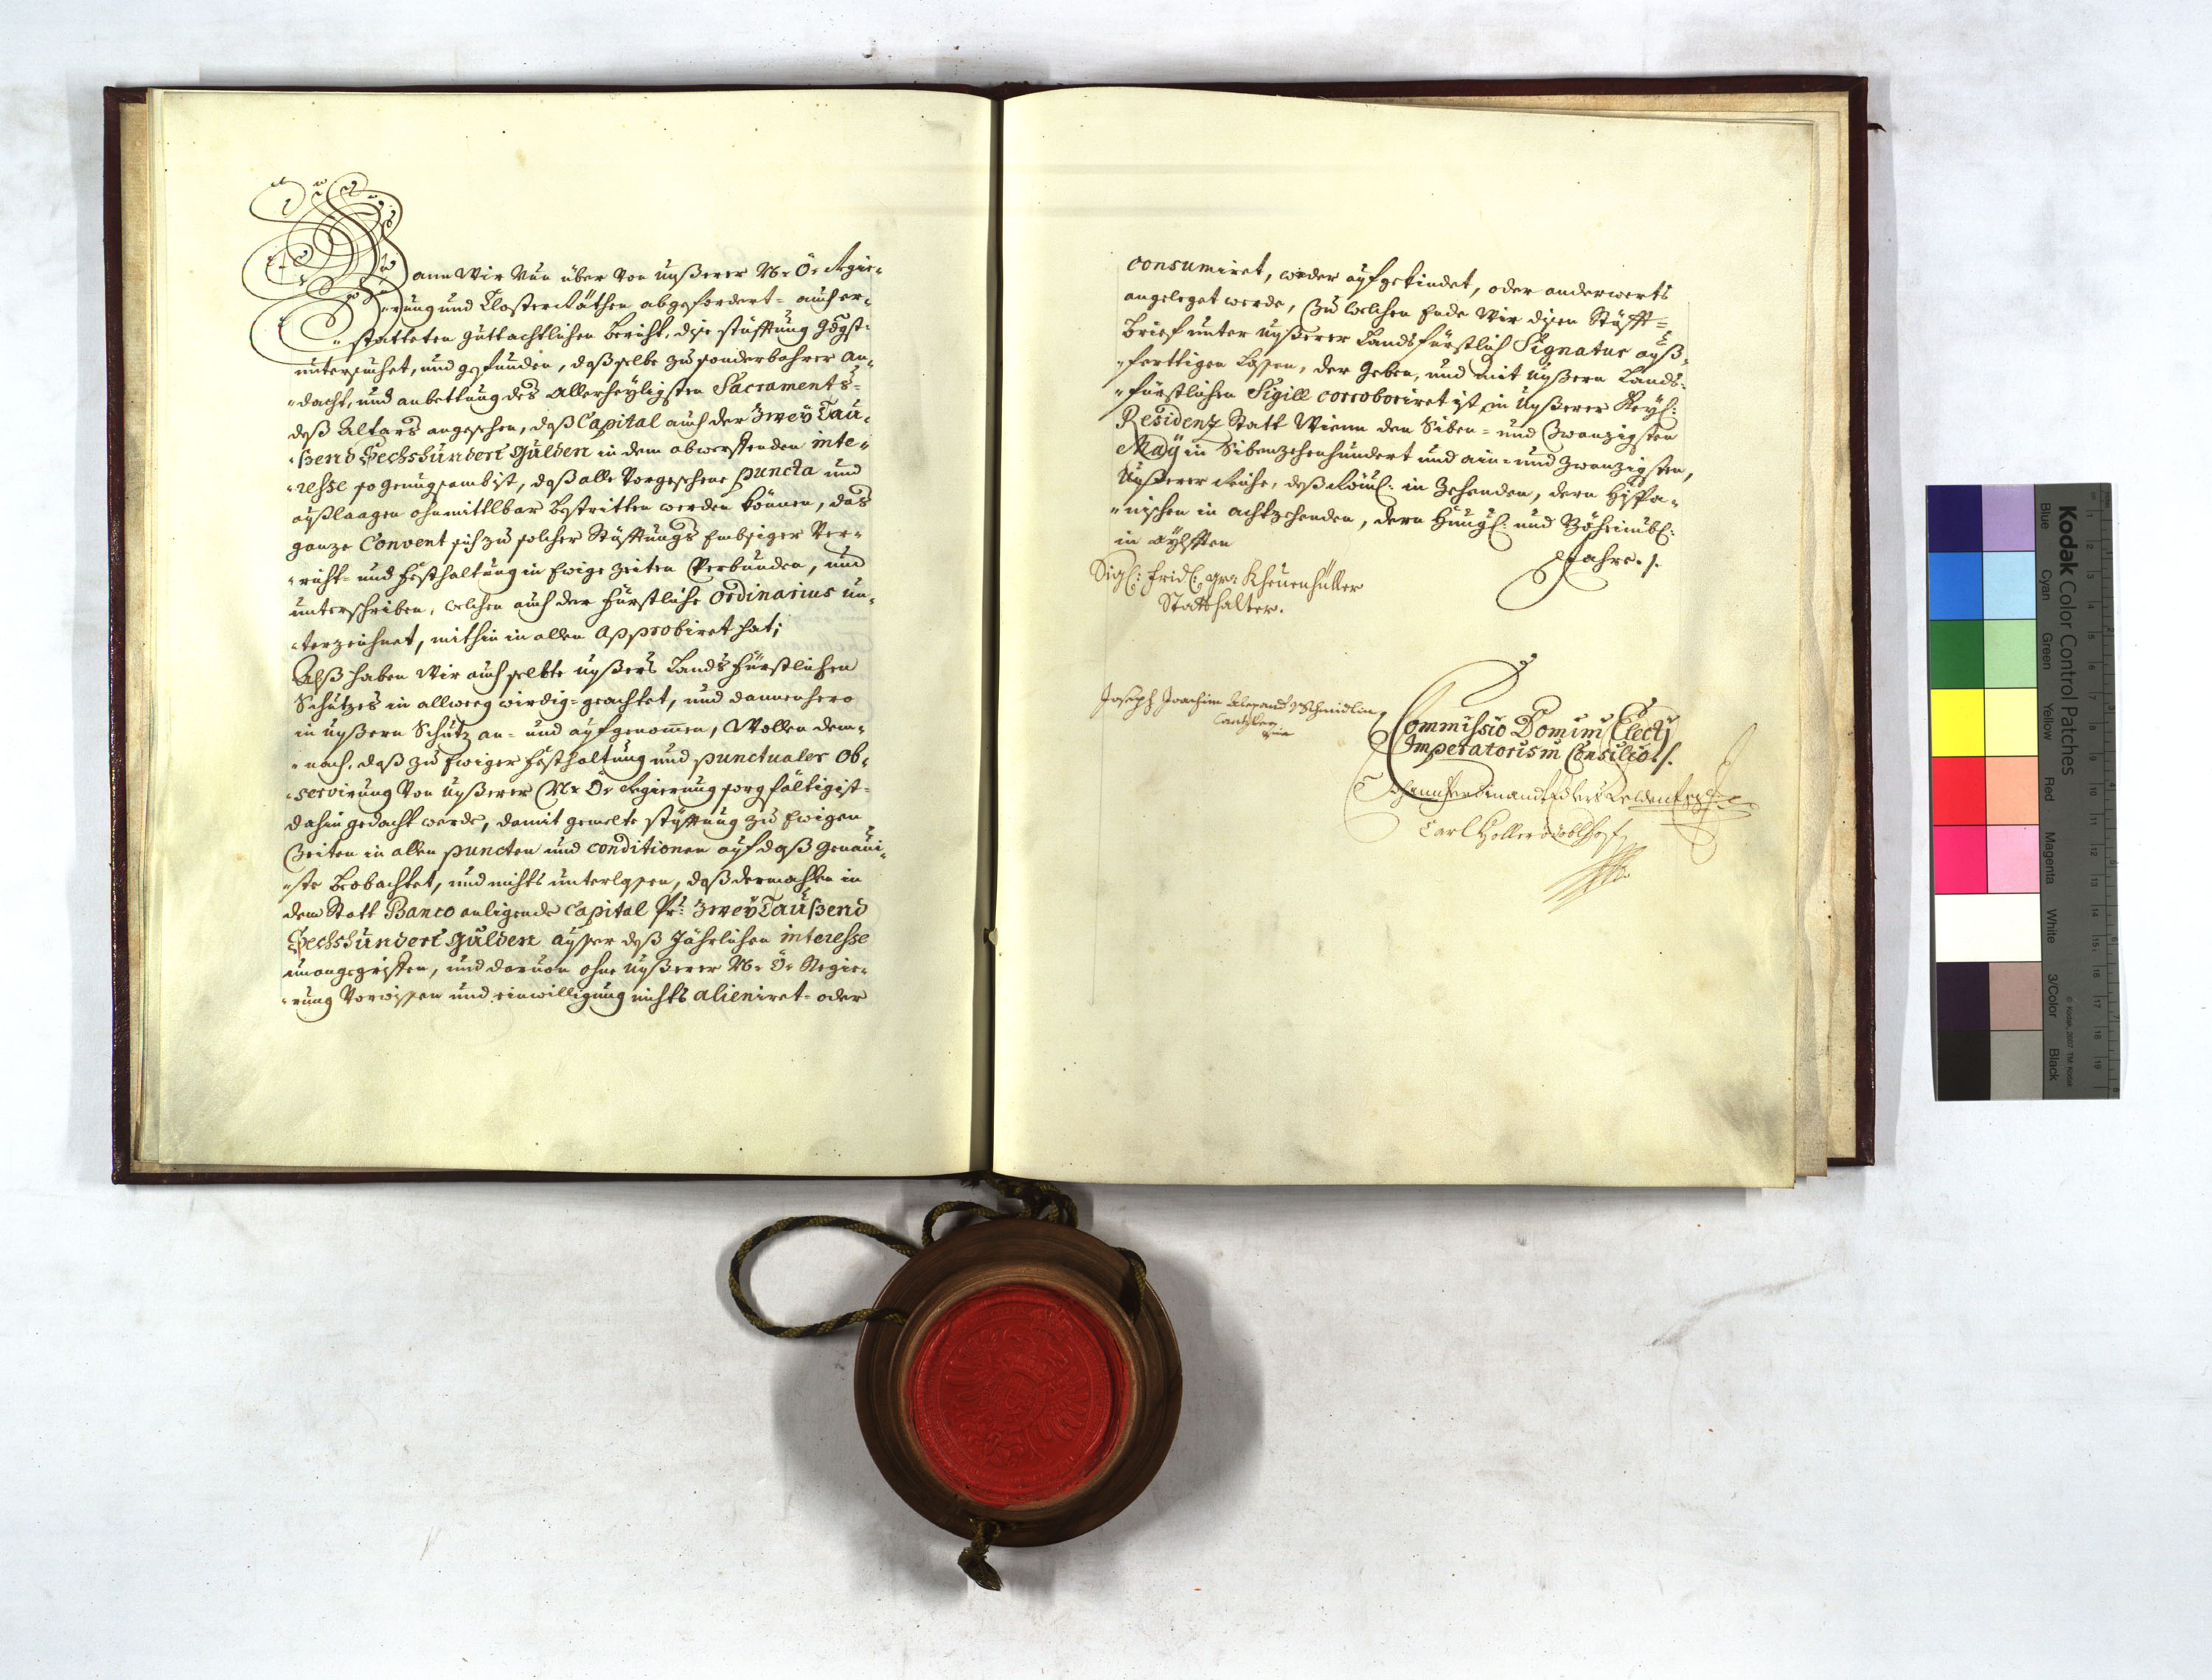 Wann Wir Nun über von unßerer N: Ö: Regie-
rung und Closter Räthen abgefordert- auch er-
statteten guttachtlichen Bericht, dise stüfftung
untersuchet, und gefunden, daß selbe zu sonderbahrer an-
dacht, und anbettung des Allerheyligsten Sacraments-
deß Altars angesehen, daß Capital auch der Zwey Tau-
ßend Sechshundert Gulden in dem abwerffenden inte-
resse so genugsamb ist, daß alle vorgesehene puncta und
außlaagen ohnmittlbar bestritten werden können, das
ganze Convent sich zu solcher Stüfftungs Embsiger Ver-
richt- und festhaltung in Ewige Zeiten Verbunden, und
unterschriben, welchen auch der Fürstliche Ordinarius un-
terzeichnet, mithin in allen Approbiret hat;
Alß haben Wir auch selbte unßers Lands Fürstlichen
Schutzes in allweeg würdig- geachtet, und dannenhero
in unßern Schutz an- und aufgenommen, Wollen dem-
nach, daß zu Ewiger Festhaltung und punctualer Ob-
servirung Von unßerer N: Ö: Regierung sorgfältigist-
dahin gedacht werde, damit gemelte stüfftung zu Ewigen
Zeiten in allen puncten und conditionen auf daß genaui-
ste beobachtet, und nichts unterlassen, daß dermahlen in
dem Statt Banco anligende Capital Pr: Zwey Taußend
Sechshundert Gulden ausser deß Jährlichen interesse
unangegriffen, und daruon ohne unßerer N: Ö: Regie-
rung Vorwissen und einwilligung nichts alieniret- oder
consumiret, weder aufgekündet, oder anderwerts
angeleget werde, Zu welchen Ende Wir disen Stüfft-
Brief unter unßerer Landsfürstlich Signatur auß-
ferttigen lassen, der geben, und mit unßern Lands-
fürstlichen Sigill corroboriret ist, in unßerer Keyl:
Residenz Statt Wienn den Siben- und Zwanzigsten
May in Sibenzehenhundert und ain- und zwanzigsten,
Unßerer Reiche, deß Röml: in Zehenden, dern Hispa-
nischen in achtzehenden, dern Hungl: und Böheimbl:
in Aylfften
Jahre./.
Sigl: Fridl: gra: Kheuenhüller
Statthalter.
Joseph Joachim Alexand: Schmidlin
Cantzler
Commissio Domini Electi
Imperatoris in Consilio./.
Johann Ferdinand Edler
Carl Holler v Doblhof
Kodak Color Control Patches
Blue Cyan Green Yellow Red Magenta White 3/Color Black
© Kodak, 2007 TM: Kodak
1 2 3 4 5 6 7 8 9 10 11 12 13 14 15 16 17 18 19